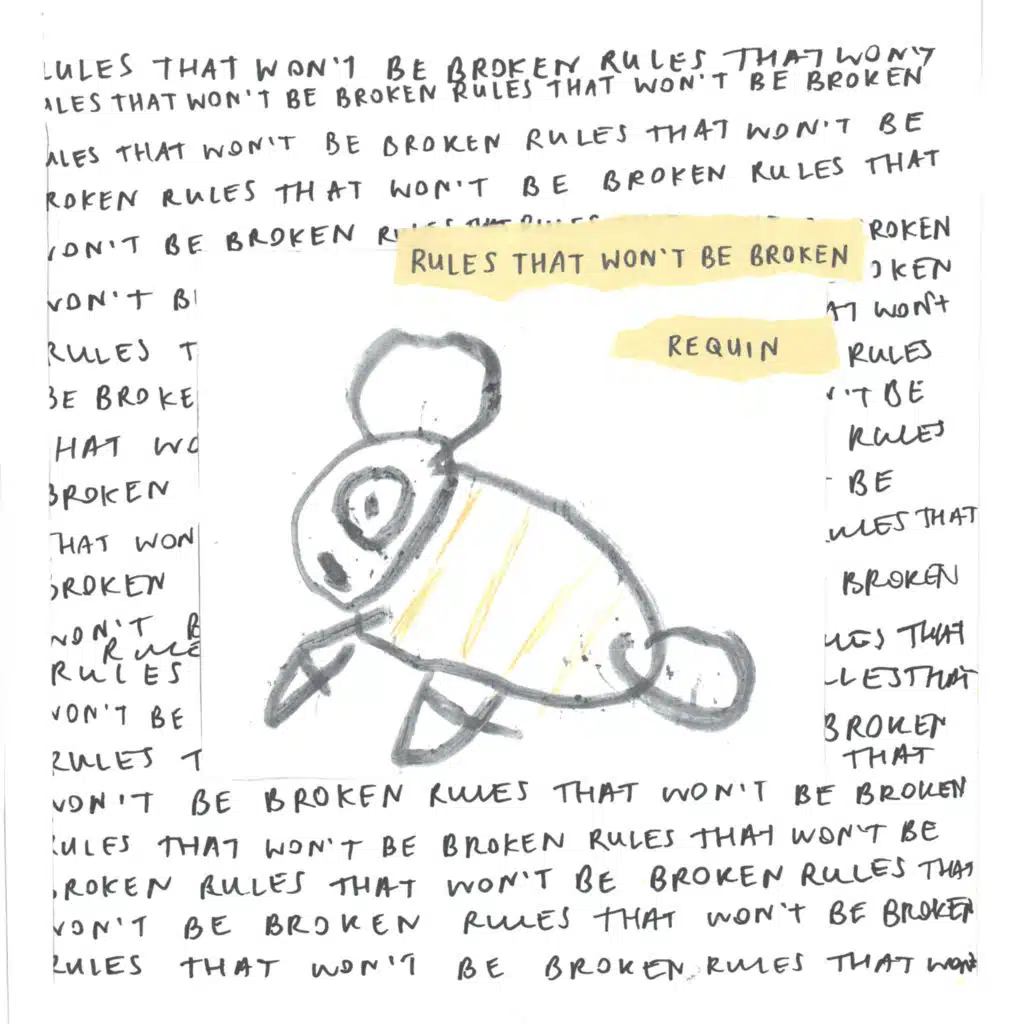 RULES THAT WON'T BE BROKEN RULES THAT WON'T
RULES THAT WON'T BE BROKEN RULES THAT WON'T BE BROKEN
RULES THAT WON'T BE BROKEN RULES THAT WON'T BE
BROKEN RULES THAT WON'T BE BROKEN RULES THAT
WON'T BE BROKEN BROKEN
RULES THAT WON'T BE BROKEN
WON'T BROKEN
THAT WON'T
REQUIN
RULES RULES
BE BROKE 'T BE
THAT RULES
BROKEN BE
THAT WON RULES THAT
BROKEN BROKEN
WON'T RULES THAT
RULE
RULES RULES THAT
WON'T BE BROKEN
RULES THAT
WON'T BE BROKEN RULES THAT WON'T BE BROKEN
RULES THAT WON'T BE BROKEN RULES THAT WON'T BE
BROKEN RULES THAT WON'T BE BROKEN RULES THAT
WON'T BE BROKEN RULES THAT WON'T BE BROKEN
RULES THAT WON'T BE BROKEN RULES THAT WON'T